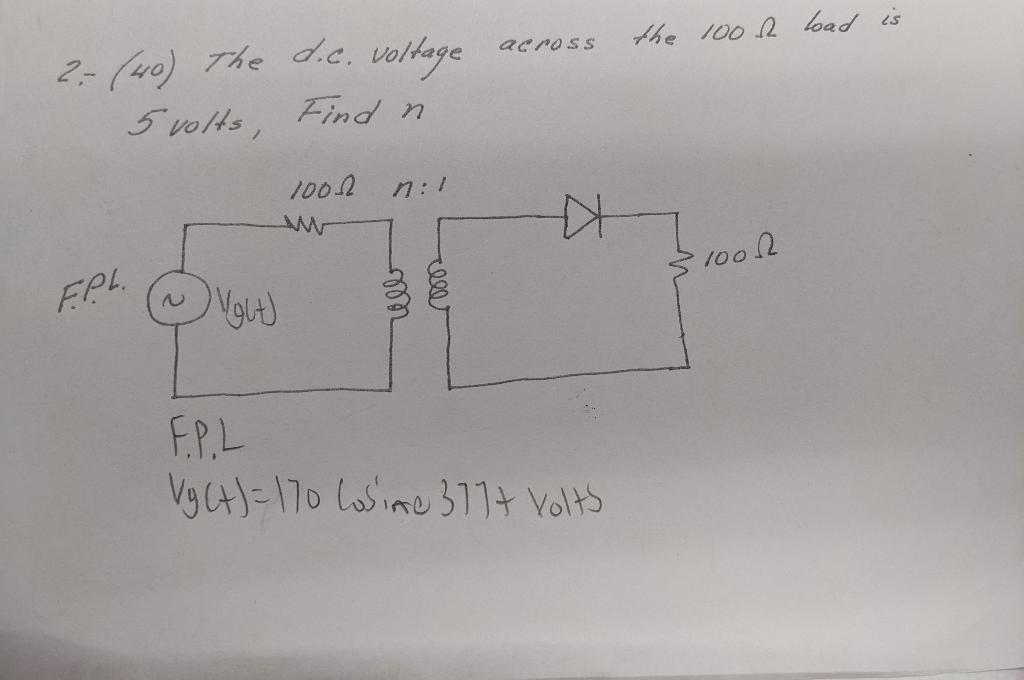 2.- (40) The d.c. voltage across the 100 Ω load is
5 volts, Find n
100Ω n:1
F.P.L. Vg(t) 100Ω
F.P.L
Vg(t)=170 Cosine 377t Volts